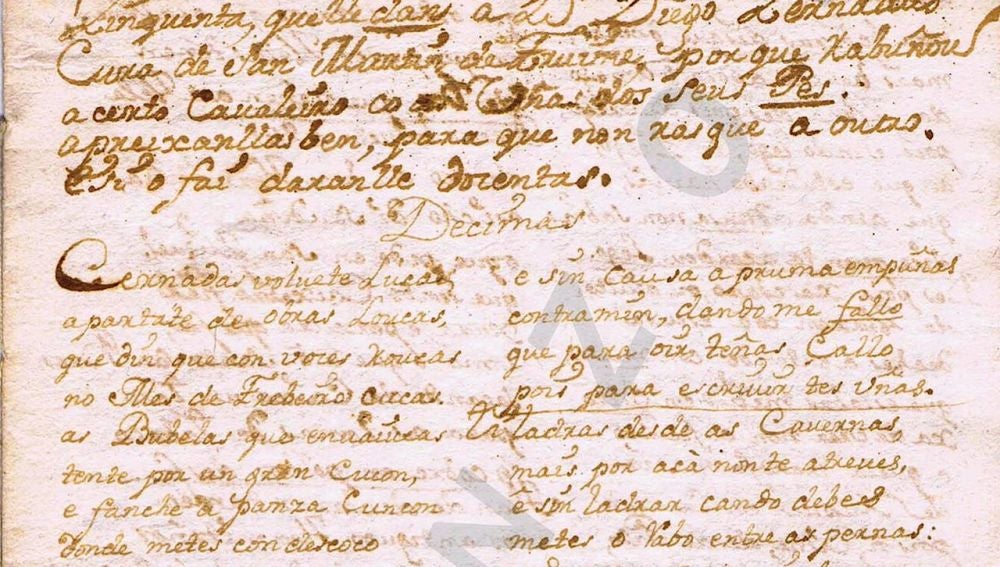 Zinquenta, quelle dans a D. Diego Zernadas
Cura de San Martiń de Fruime, por que rabuñou
a certo Cavaleiro co as Uñas dos seus Pes.
apreixanllas ben, para que non rasque a outro.
E si o fai daranlle docentas.
Decimas
Cernadas volvete Lucas,
apartate de obras Loucas,
que din que con voces roucas
no Mes de Frebeiro cucas.
as Bubelas que envaucas
tente por un gran Cucon,
e fanche a panza Cuncon
donde metes con descoco
e sin causa a pruma empuñas
contra min, dando me fallo
que para oir, teñas Callo
pois para escrivir tes vñas.
Ti ladras desde as Cavernas,
mais por acà non te atreves,
e sin ladrar cando debes
metes o rabo entre as pernas: